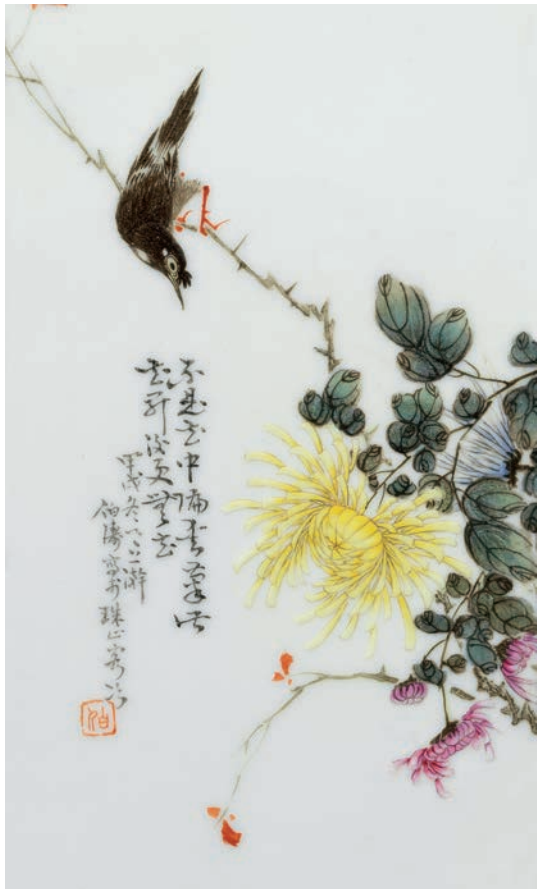 不是花中偏愛菊此
花開後更無花
甲戌冬八之上澣
伯濤寫於珠山客次
伯